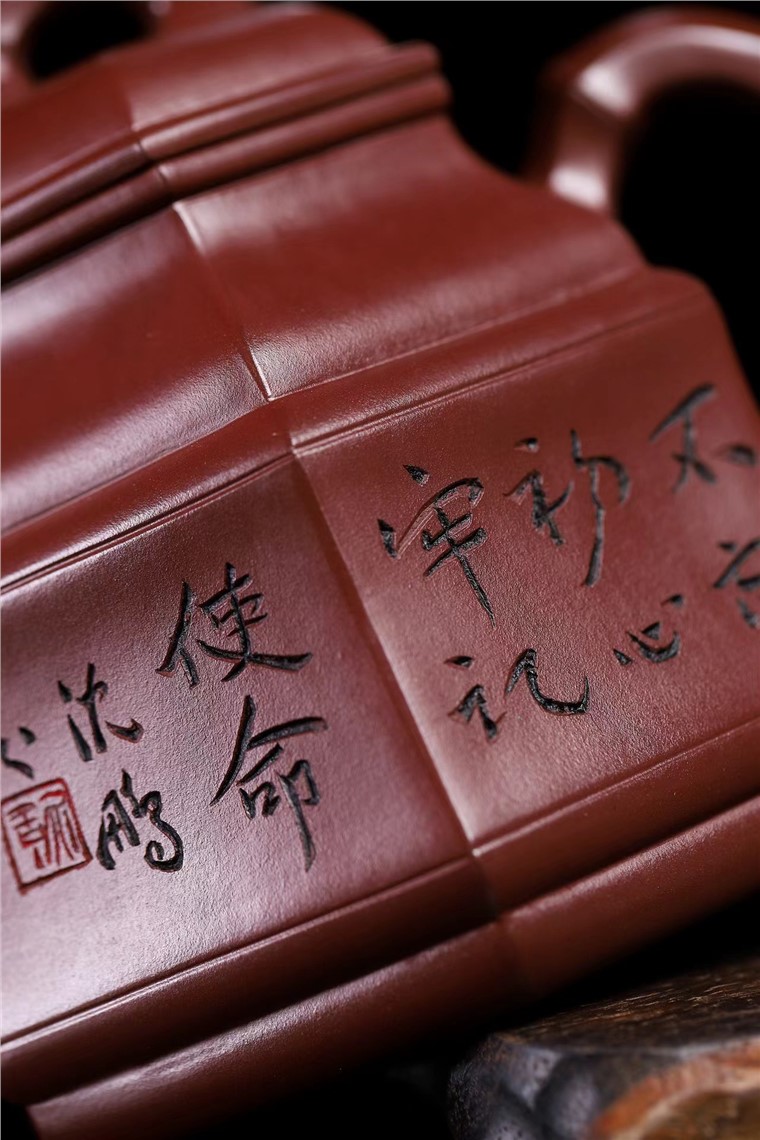 不忘
初心
牢记
使命
沈鹏